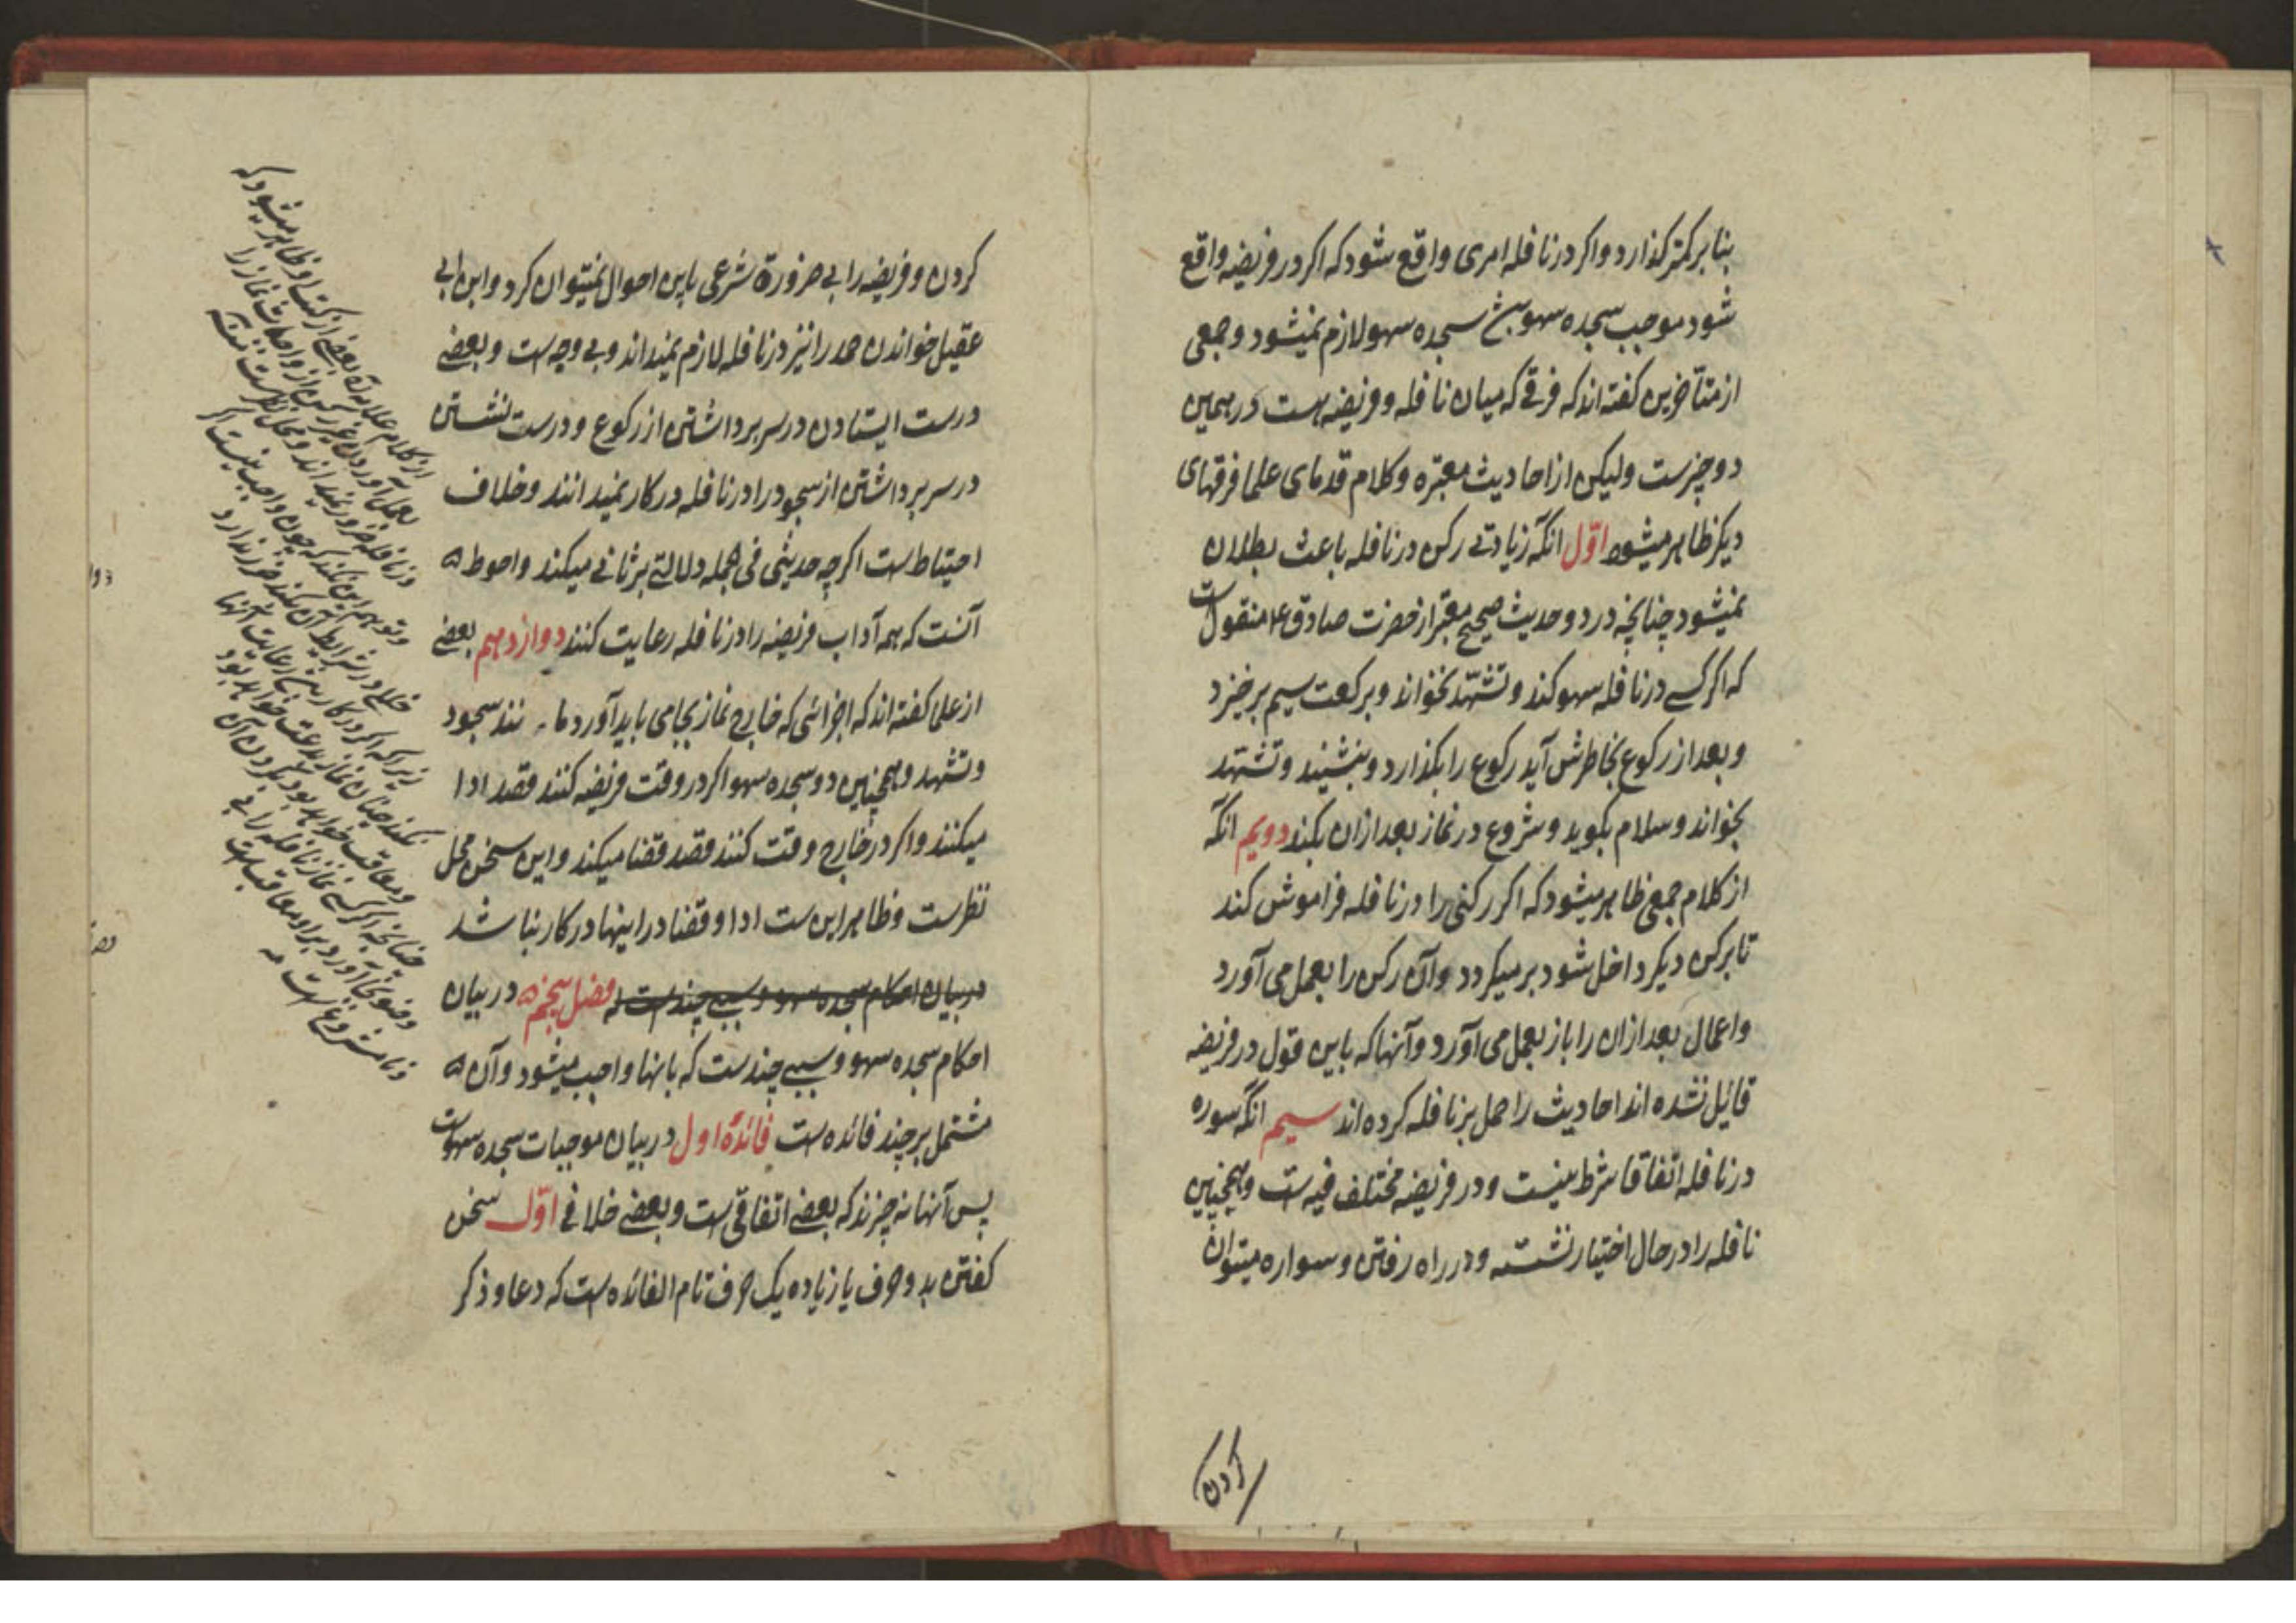 بنا بر کمتر کذارد واکر در نافله امری واقع شود که اکر در فریضه واقع
شود موجب سجده سهو باشد سجده سهو لازم نمیشود وجمعی
از متأخرین کفته اند که فرقی که میان نافله وفریضه هست در همین
دو چیزست ولیکن از احادیث معتبره وکلام قدمای علما فرقهای
دیکر ظاهر میشود اوّل انکه زیادتی رکن در نافله باعث بطلان
نمیشود چنانچه در دو حدیث صحیح معتبر از حضرت صادق ع منقول است
که اکر کسی در نافله سهو کند وتشهّد نخواند وبرکعت سیم برخیزد
وبعد از رکوع بخاطرش آید رکوع را بکذارد وبنشیند وتشهّد
بخواند وسلام بکوید وشروع در نماز بعد ازان بکند دویم انکه
از کلام جمعی ظاهر میشود که اکر رکنی را در نافله فراموش کند
تا برکن دیکر داخل شود برمیکردد وآن رکن را بعمل می آورد
واعمال بعد ازان را باز بعمل می آورد وآنها که باین قول در فریضه
قائیل نشده اند احادیث را حمل بر نافله کرده اند سیم انکه سوره
در نافله اتفاقا شرط نیست ودر فریضه مختلف فیه است وهمچنین
نافله را در حال اختیار نشسته ودر راه رفتن وسواره میتوان
کردن
کردن وفریضه را بی ضرورة شرعی باین احوال نمیتوان کرد وابن ابی
عقیل خواندن حمد را نیز در نافله لازم نمیداند وبی وجه است وبعضی
درست ایستادن در سر برداشتن از رکوع ودرست نشستن
در سر برداشتن از سجود را در نافله درکار نمیدانند وخلاف
احتیاط است اکرچه حدیثی فی الجمله دلالتی بر ثانی میکند واحوط
آنست که همه آداب فریضه را در نافله رعایت کنند دوازدهم بعضی
از علما کفته اند که اجزائی که خارج نماز بجا می باید آورد مانند سجود
وتشهد وهمچنین دو سجده سهو اکر در وقت فریضه کنند قصد ادا
میکنند واکر در خارج وقت کنند قصد قضا میکند واین سخن محل
نظرست وظاهر این ست ادا وقضا در اینها درکار نباشد
در بیان احکام سجده سهو وسببی چند است که فصل پنجم در بیان
احکام سجده سهو وسببی چند ست که بانها واجب میشود وآن
مشتمل بر چند فائده است فائدهٔ اول در بیان موجبات سجده سهو است
پس آنها نه چیزند که بعضی اتفاقی است وبعضی خلافی اوّل سخن
کفتن بدو حرف یا زیاده یک حرف تام الفائده است که دعا وذکر
از کلام علامه
ظاهر میشود که
واجبات نماز را
در نافله
وتوهم این نکند که چون واجب نیست اکر
زیرا که اکر
چنانچه اکر کسی نماز نافله را بی
وضو بجا آورد
ونامشروع است